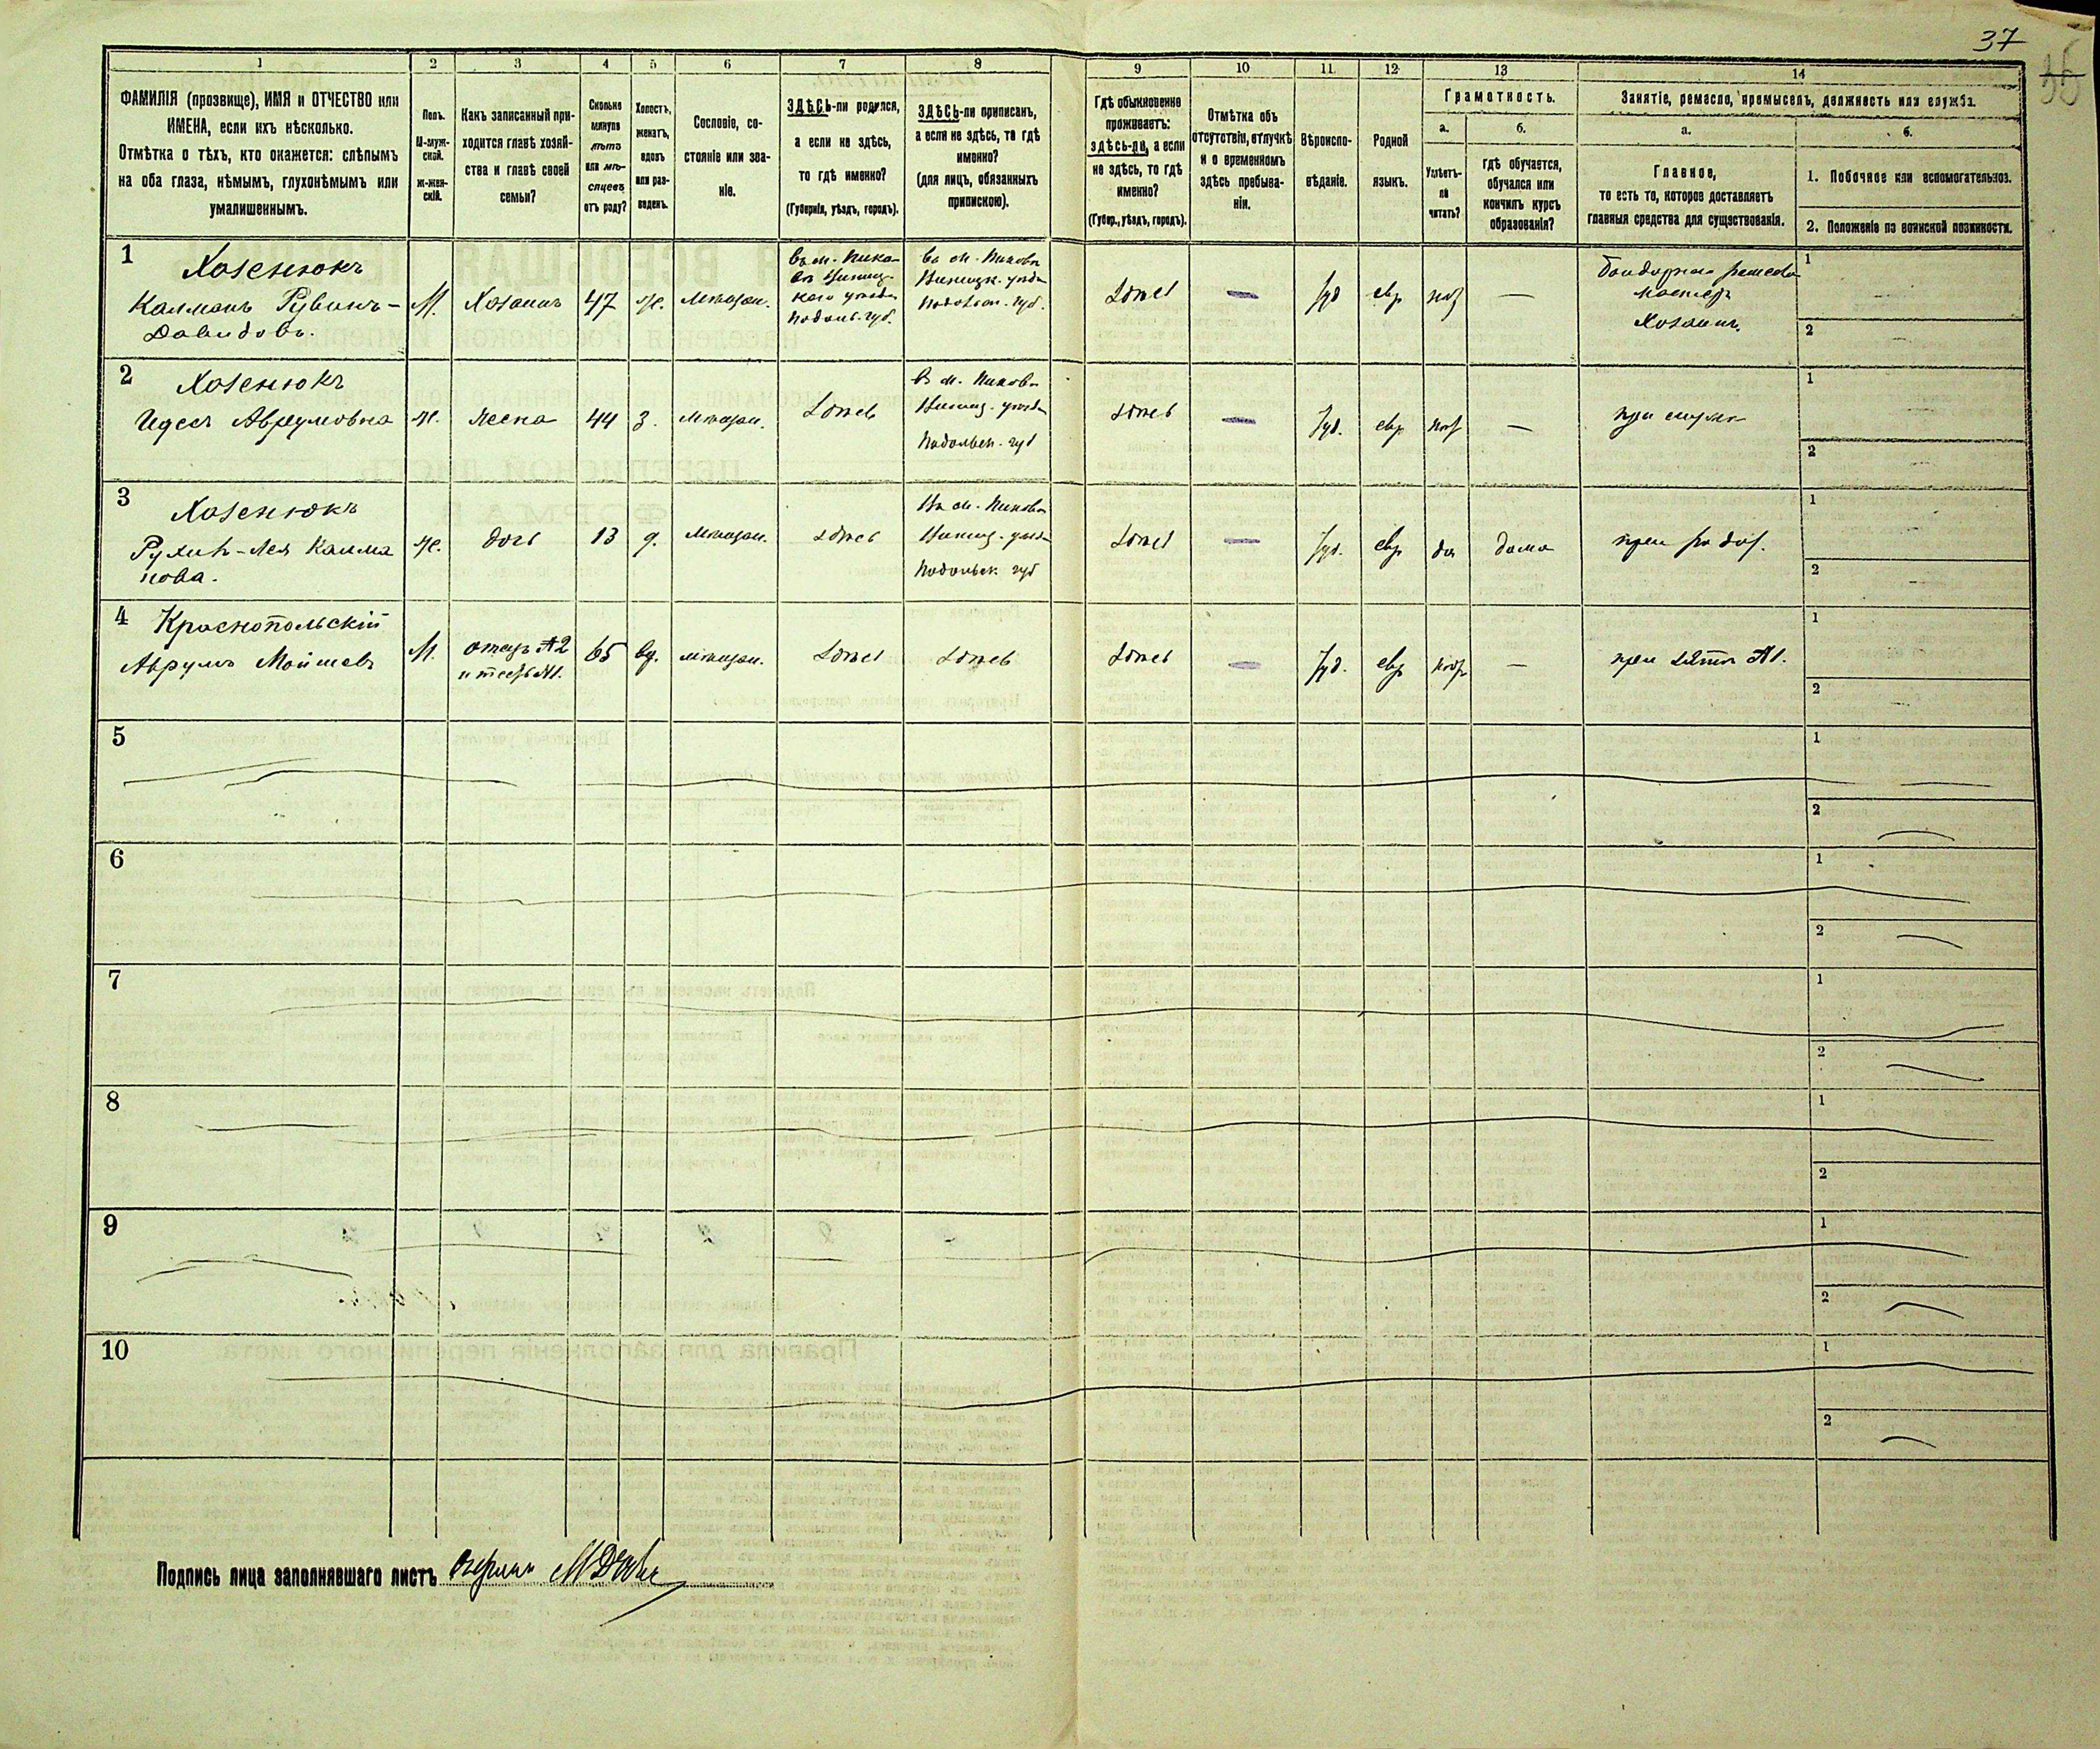 37
1 2 3 4 5 6 7 8 9 10 11 12 13 14
ФАМИЛІЯ (прозвище), ИМЯ и ОТЧЕСТВО или
ИМЕНА, если ихъ нѣсколько.
Отмѣтка о тѣхъ, кто окажется: слѣпымъ
на оба глаза, нѣмымъ, глухонѣмымъ или
умалишеннымъ.
Полъ.
М-муж-
ской.
ж-жен-
скій.
Какъ записанный при-
ходится главѣ хозяй-
ства и главѣ своей
семьи?
Сколько
минуло
лѣтъ
или мѣ-
сяцевъ
отъ роду?
Холостъ,
женатъ,
вдовъ
или раз-
веденъ.
Сословіе, со-
стояніе или зва-
ніе.
ЗДѢСЬ-ли родился,
а если не здѣсь,
то гдѣ именно?
(Губернія, уѣздъ, городъ).
ЗДѢСЬ-ли приписанъ,
а если не здѣсь, то гдѣ
именно?
(для лицъ, обязанныхъ
припискою).
Гдѣ обыкновенно
проживаетъ:
здѣсь-ли, а если
не здѣсь, то гдѣ
именно?
(Губер., уѣздъ, городъ).
Отмѣтка объ
отсутствіи, отлучкѣ
и о временномъ
здѣсь пребыва-
ніи.
Вѣроиспо-
вѣданіе.
Родной
языкъ.
Грамотность.
а.
Умѣетъ-
ли
читать?
б.
гдѣ обучается,
обучался или
кончилъ курсъ
образованія?
Занятіе, ремесло, промыселъ, должность или служба.
а.
Главное,
то есть то, которое доставляетъ
главныя средства для существованія.
б.
1. Побочное или вспомогательное.
2. Положеніе по воинской повинности.
1
Хозенюкъ
Калманъ Рувинъ-
Давидовъ.
М.
Хозяинъ
47
ж.
мѣщан.
въ м. Пико-
въ Винниц-
каго уѣзда
Подоль. губ.
въ м. Пиковъ
Винницк. уѣзда
Подольск. губ.
здѣсь
—
Іуд
евр
—
Хозяинъ
1
2
2
Хозенюкъ
Идесъ Аврумовна
ж.
жена
44
З.
мѣщан.
здѣсь
в м. Пиков
Винниц. уѣзда
Подольск. губ
здѣсь
—
Іуд.
евр
—
при мужѣ
1
2
3
Хозенюкъ
Рухля-Лея Калма
нова.
ж.
дочь
13
д.
мѣщан.
здѣсь
Въ м. Пиков
Винниц. уѣзда
Подольск губ
здѣсь
—
Іуд.
евр
да
дома
при род.
1
2
4
Краснопольскій
Аврумъ Мошневъ
М.
отецъ №2
и тесть №1.
65
вд.
мѣщан.
здѣсь
здѣсь
здѣсь
—
Іуд.
евр
—
при зятѣ №1.
1
2
5 1
2
6 1
2
7 1
2
8 1
2
9 1
2
10 1
2
Подпись лица заполнявшаго листъ